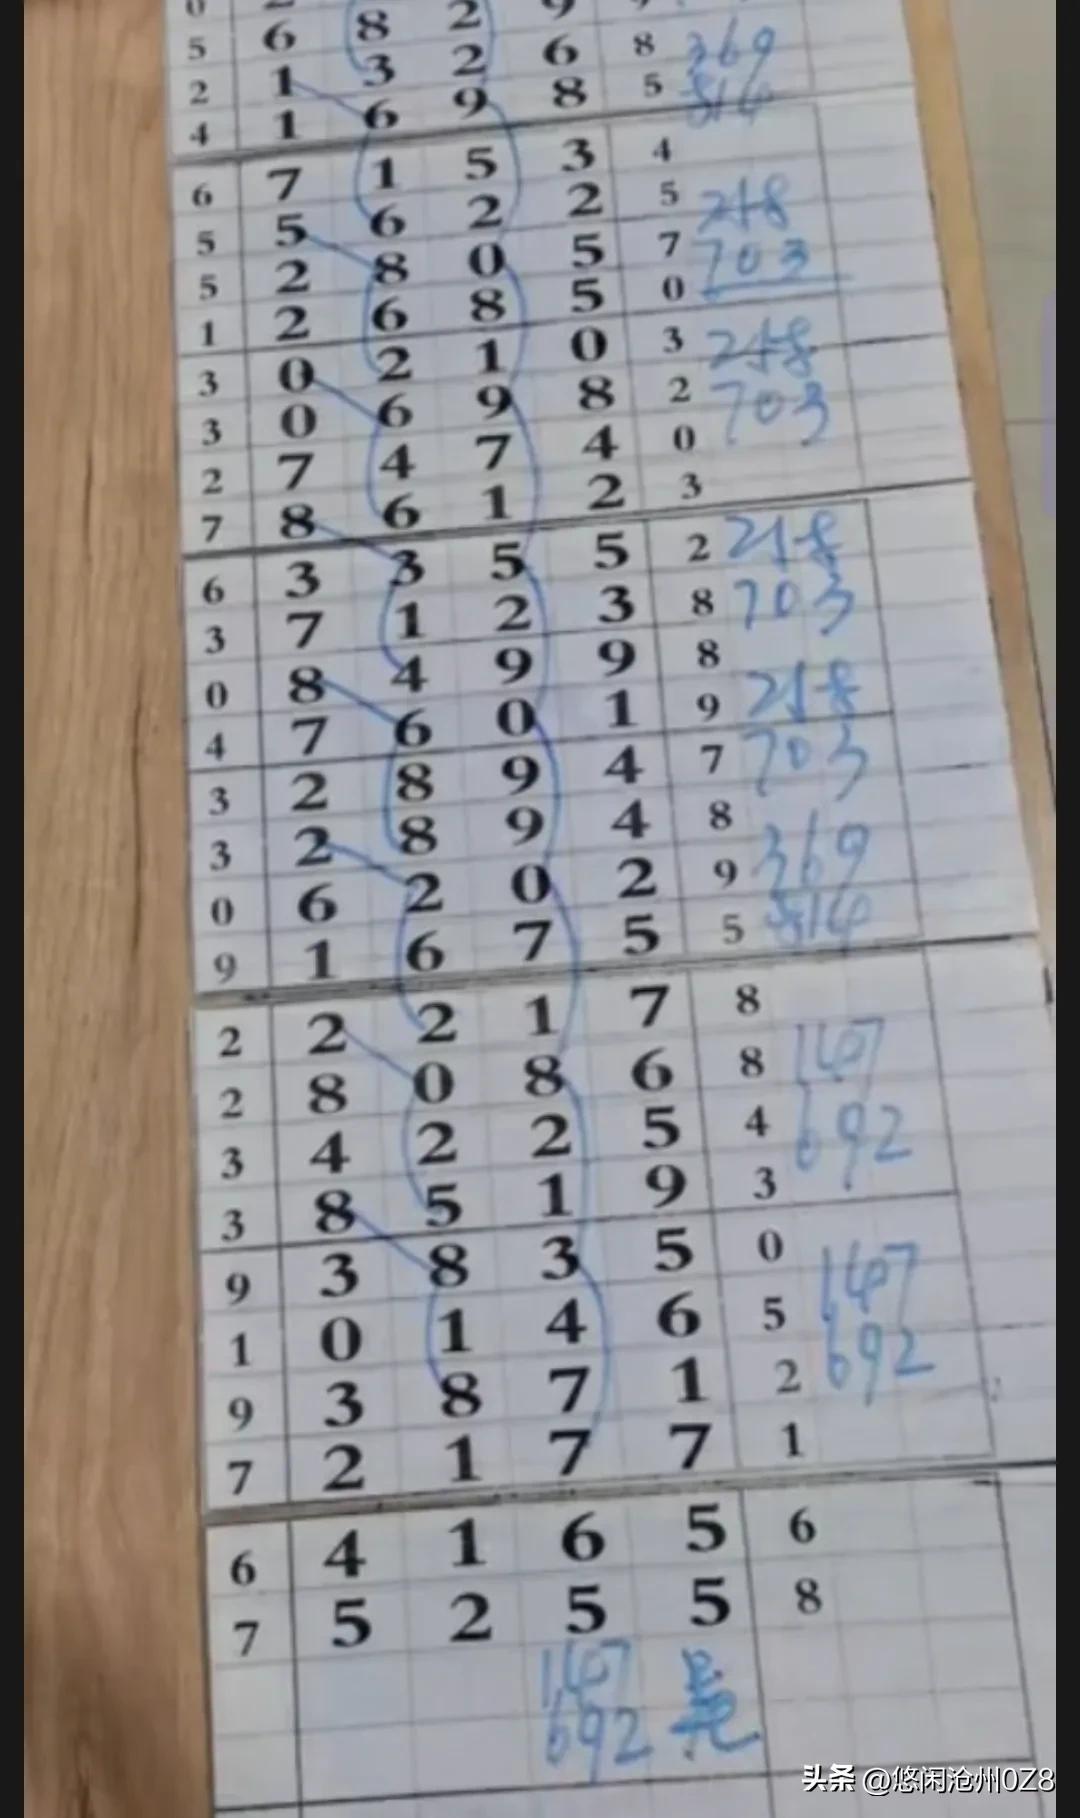 5 6 8 2 9
2 1 3 2 6 8 369
4 1 6 9 8 5 814
6 7 1 5 3 4
5 5 6 2 2 5 258
5 2 8 0 5 7 703
1 2 6 8 5 0
3 0 2 1 0 3 258
3 0 6 9 8 2 703
2 7 4 7 4 0
7 8 6 1 2 3
6 3 3 5 5 2 258
3 7 1 2 3 8 703
0 8 4 9 9 8
4 7 6 0 1 9 258
3 2 8 9 4 7 703
3 2 8 9 4 8
0 6 2 0 2 9 369
9 1 6 7 5 5 814
2 2 2 1 7 8
2 8 0 8 6 8 147
3 4 2 2 5 4 692
3 8 5 1 9 3
9 3 8 3 5 0 147
1 0 1 4 6 5
9 3 8 7 1 2 692
7 2 1 7 7 1
6 4 1 6 5 6
7 5 2 5 5 8
147
692
头条 @悠闲沧州0Z8